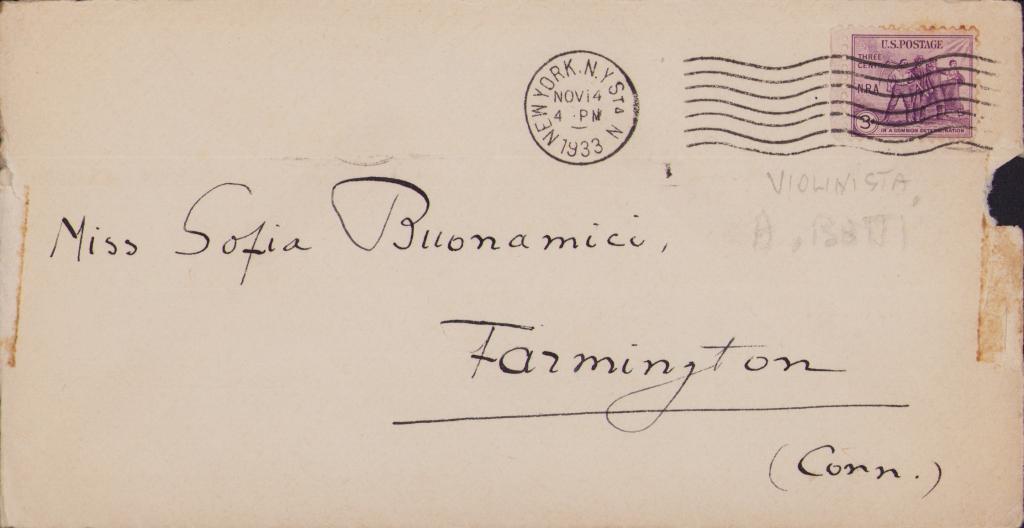 NEW YORK, N.Y. STA N
NOV 14
4 PM
1933
U.S. POSTAGE
THREE CENTS
NRA
3¢
IN A COMMON DETERMINATION
VIOLINISTA,
Miss Sofia Buonamici,
Farmington
(Conn.)